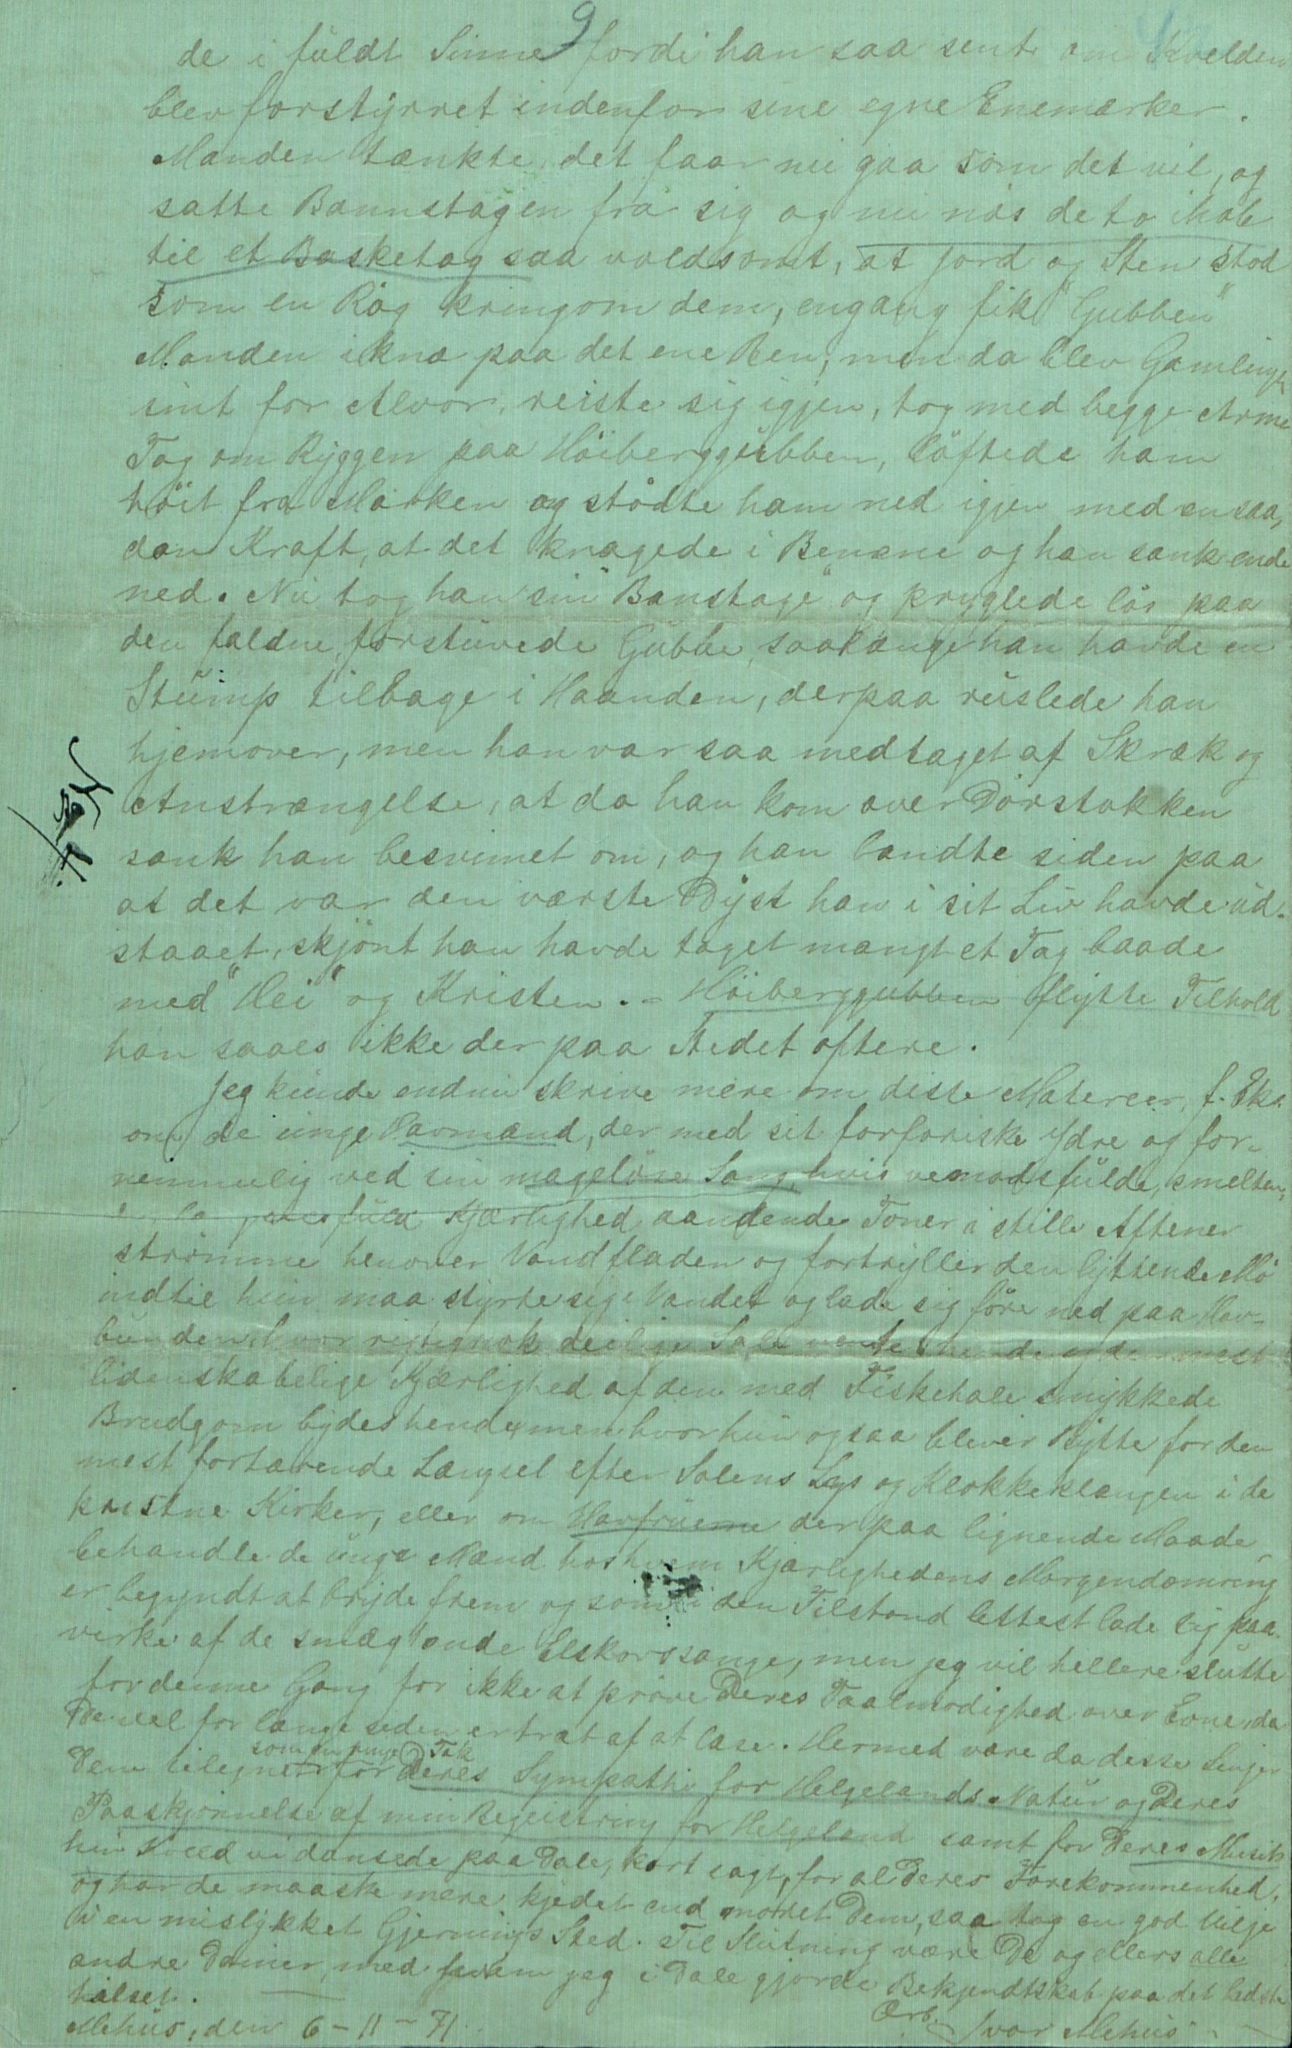 9
de i fuldt Sinne fordi han saa sent om Kvelden
blev forstyrret indenfor sine egne Enemærker.
Manden tænkte, det faar nu gaa som det vil, og
satte Baunstagen fra sig og nu røs de to ihob
til et Basketag saa voldsomt, at Jord og Sten stod
som en Røg kringom dem, engang fik "Gubben"
Manden i knæ paa det ene Ben, men da blev Gamlingen
sint for Alvor, reiste sig igjen, tog med begge Arme
Tag om Ryggen paa Höiberggubben, löftede ham
höit fra Marken og stödte ham ned igjen med en saa,
dan Kraft, at det knagede i Benene og han sank ende
ned. Nu tog han sin "Banstage" og pryglede lös paa
den faldne, forstuvede Gubbe, saalænge han havde en
Stump tilbage i Haanden, derpaa ruslede han
hjemover, men han var saa medtaget af Skræk og
Anstrængelse, at da han kom over Dörstokken
sank han besvimet om, og han bandte siden paa
at det var den værste Dyst han i sit Liv havde ud-
staaet, skjönt han havde taget mangt et Tag baade
med "Hei" og Kristen. - Höiberggubben flytte Tilhold
han saaes ikke der paa Stedet oftere.
Jeg kunde endnu skrive mere om disse Materier, f. Eks.
om de unge Havmænd, der med sit forföriske Ydre og for-
nemmelig ved sin magelöse Sang, hvis vemodsfulde, smelten,
Kjærlighed aandende Toner i stille Aftener
strömme henover Vandfladen og fortryller den lyttende Mö
indtil hun maa styrte sig i Vandet og lade sig före ned paa Hav-
bunden, hvor rigtignok deilige Sale vente hende og den mest
lidenskabelige Kjærlighed af den med Fiskehale smykkede
Brudgom bydes hende, men hvor hun ogsaa bliver Bytte for den
mest fortærende Længsel efter Solens Lys og Klokkeklangen i de
kristne Kirker, eller om Havfruerne der paa lignende Maade
behandle de unge Mænd hos hvem Kjærlighedens Morgendæmring
er begyndt at bryde frem og som i den Tilstand lettest lade sig paa-
virke af de smægtende Elskovssange, men jeg vil hellere slutte
for denne Gang for ikke at pröve Deres Taalmodighed over Evne, da
De vel for længe siden er træt af at læse. Hermed være da disse Linjer
Dem tilegnet som en ringe Tak for Deres Sympathi for Helgelands Natur og Deres
Paaskjönnelse af min Begeistring for Helgeland samt for Deres Musik
hin Kveld vi dansede paa Dale, kort sagt, for al Deres Forekommenhed,
og har de maaske mere kjedet end moret Dem, saa tag en god Vilje
i en mislykket Gjernings Sted. Til Slutning være De og ellers alle
andre Damer, med hvem jeg i Dale gjorde Bekjendtskab paa det bedste
hilset.
Mehus, den 6-11-71.
Ærb. Ivar Mehus